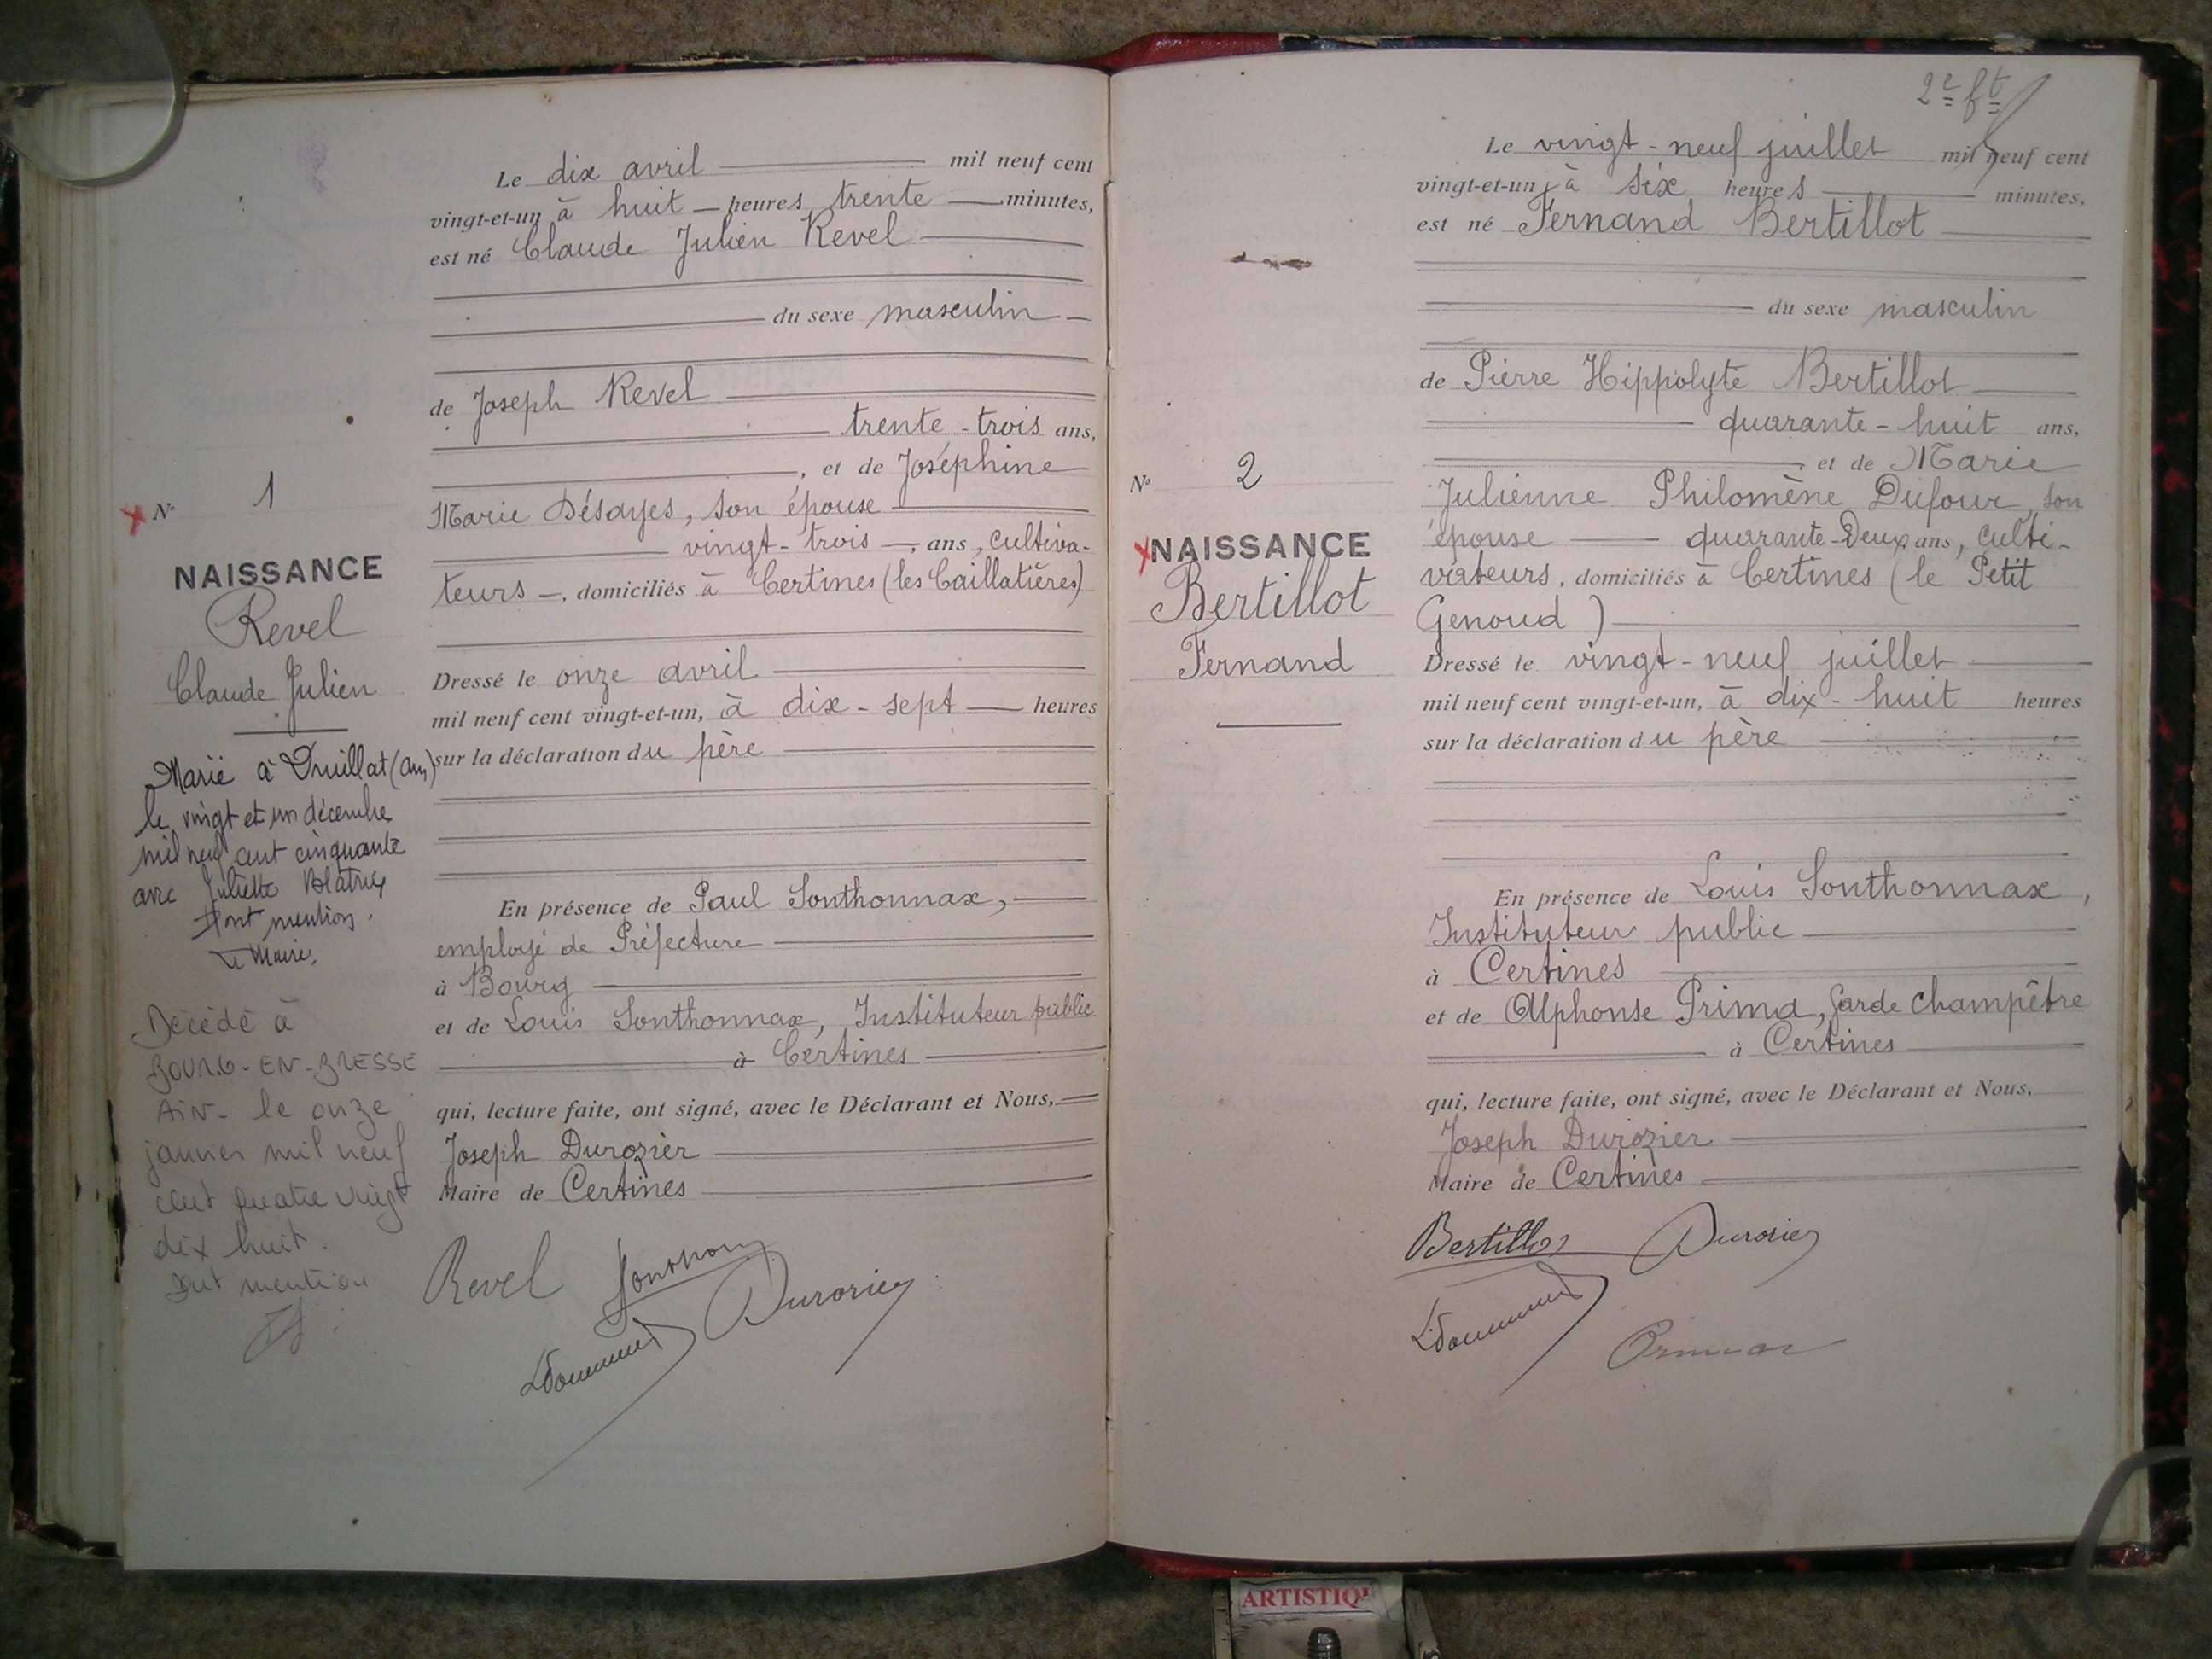 N° 1
NAISSANCE
Revel
Claude Julien
Marié à Druillat (Ain)
le vingt et un décembre
mil neuf cent cinquante
avec Juliette
Dont mention.
Le Maire,
Décédé à
BOURG-EN-BRESSE
AIN - le onze
janvier mil neuf
cent quatre vingt
dix huit.
Dont mention
Le dix avril mil neuf cent
vingt-et-un à huit heures trente minutes,
est né Claude Julien Revel
du sexe masculin
de Joseph Revel
trente-trois ans,
, et de Joséphine
Marie Désayes, son épouse
vingt-trois, ans, cultiva-
teurs, domiciliés à Certines (les Caillatières)
Dressé le onze avril
mil neuf cent vingt-et-un, à dix-sept heures
sur la déclaration du père
En présence de Paul Sonthonnax,
employé de Préfecture
à Bourg
et de Louis Sonthonnax, Instituteur public
à Certines
qui, lecture faite, ont signé, avec le Déclarant et Nous,
Joseph Durozier
Maire de Certines
Revel
Durozier
2e ft
N° 2
NAISSANCE
Bertillot
Fernand
Le vingt-neuf juillet mil neuf cent
vingt-et-un, à six heures minutes,
est né Fernand Bertillot
du sexe masculin
de Pierre Hippolyte Bertillot
quarante-huit ans,
, et de Marie
Julienne Philomène Dufour, son
épouse quarante-Deux ans, culti-
vateurs, domiciliés à Certines (le Petit
Genoud)
Dressé le vingt-neuf juillet
mil neuf cent vingt-et-un, à dix-huit heures
sur la déclaration du père
En présence de Louis Sonthonnax,
Instituteur public
à Certines
et de Alphonse Prima, garde champêtre
à Certines
qui, lecture faite, ont signé, avec le Déclarant et Nous,
Joseph Durozier
Maire de Certines
Bertillot Durozier
ARTISTIQ